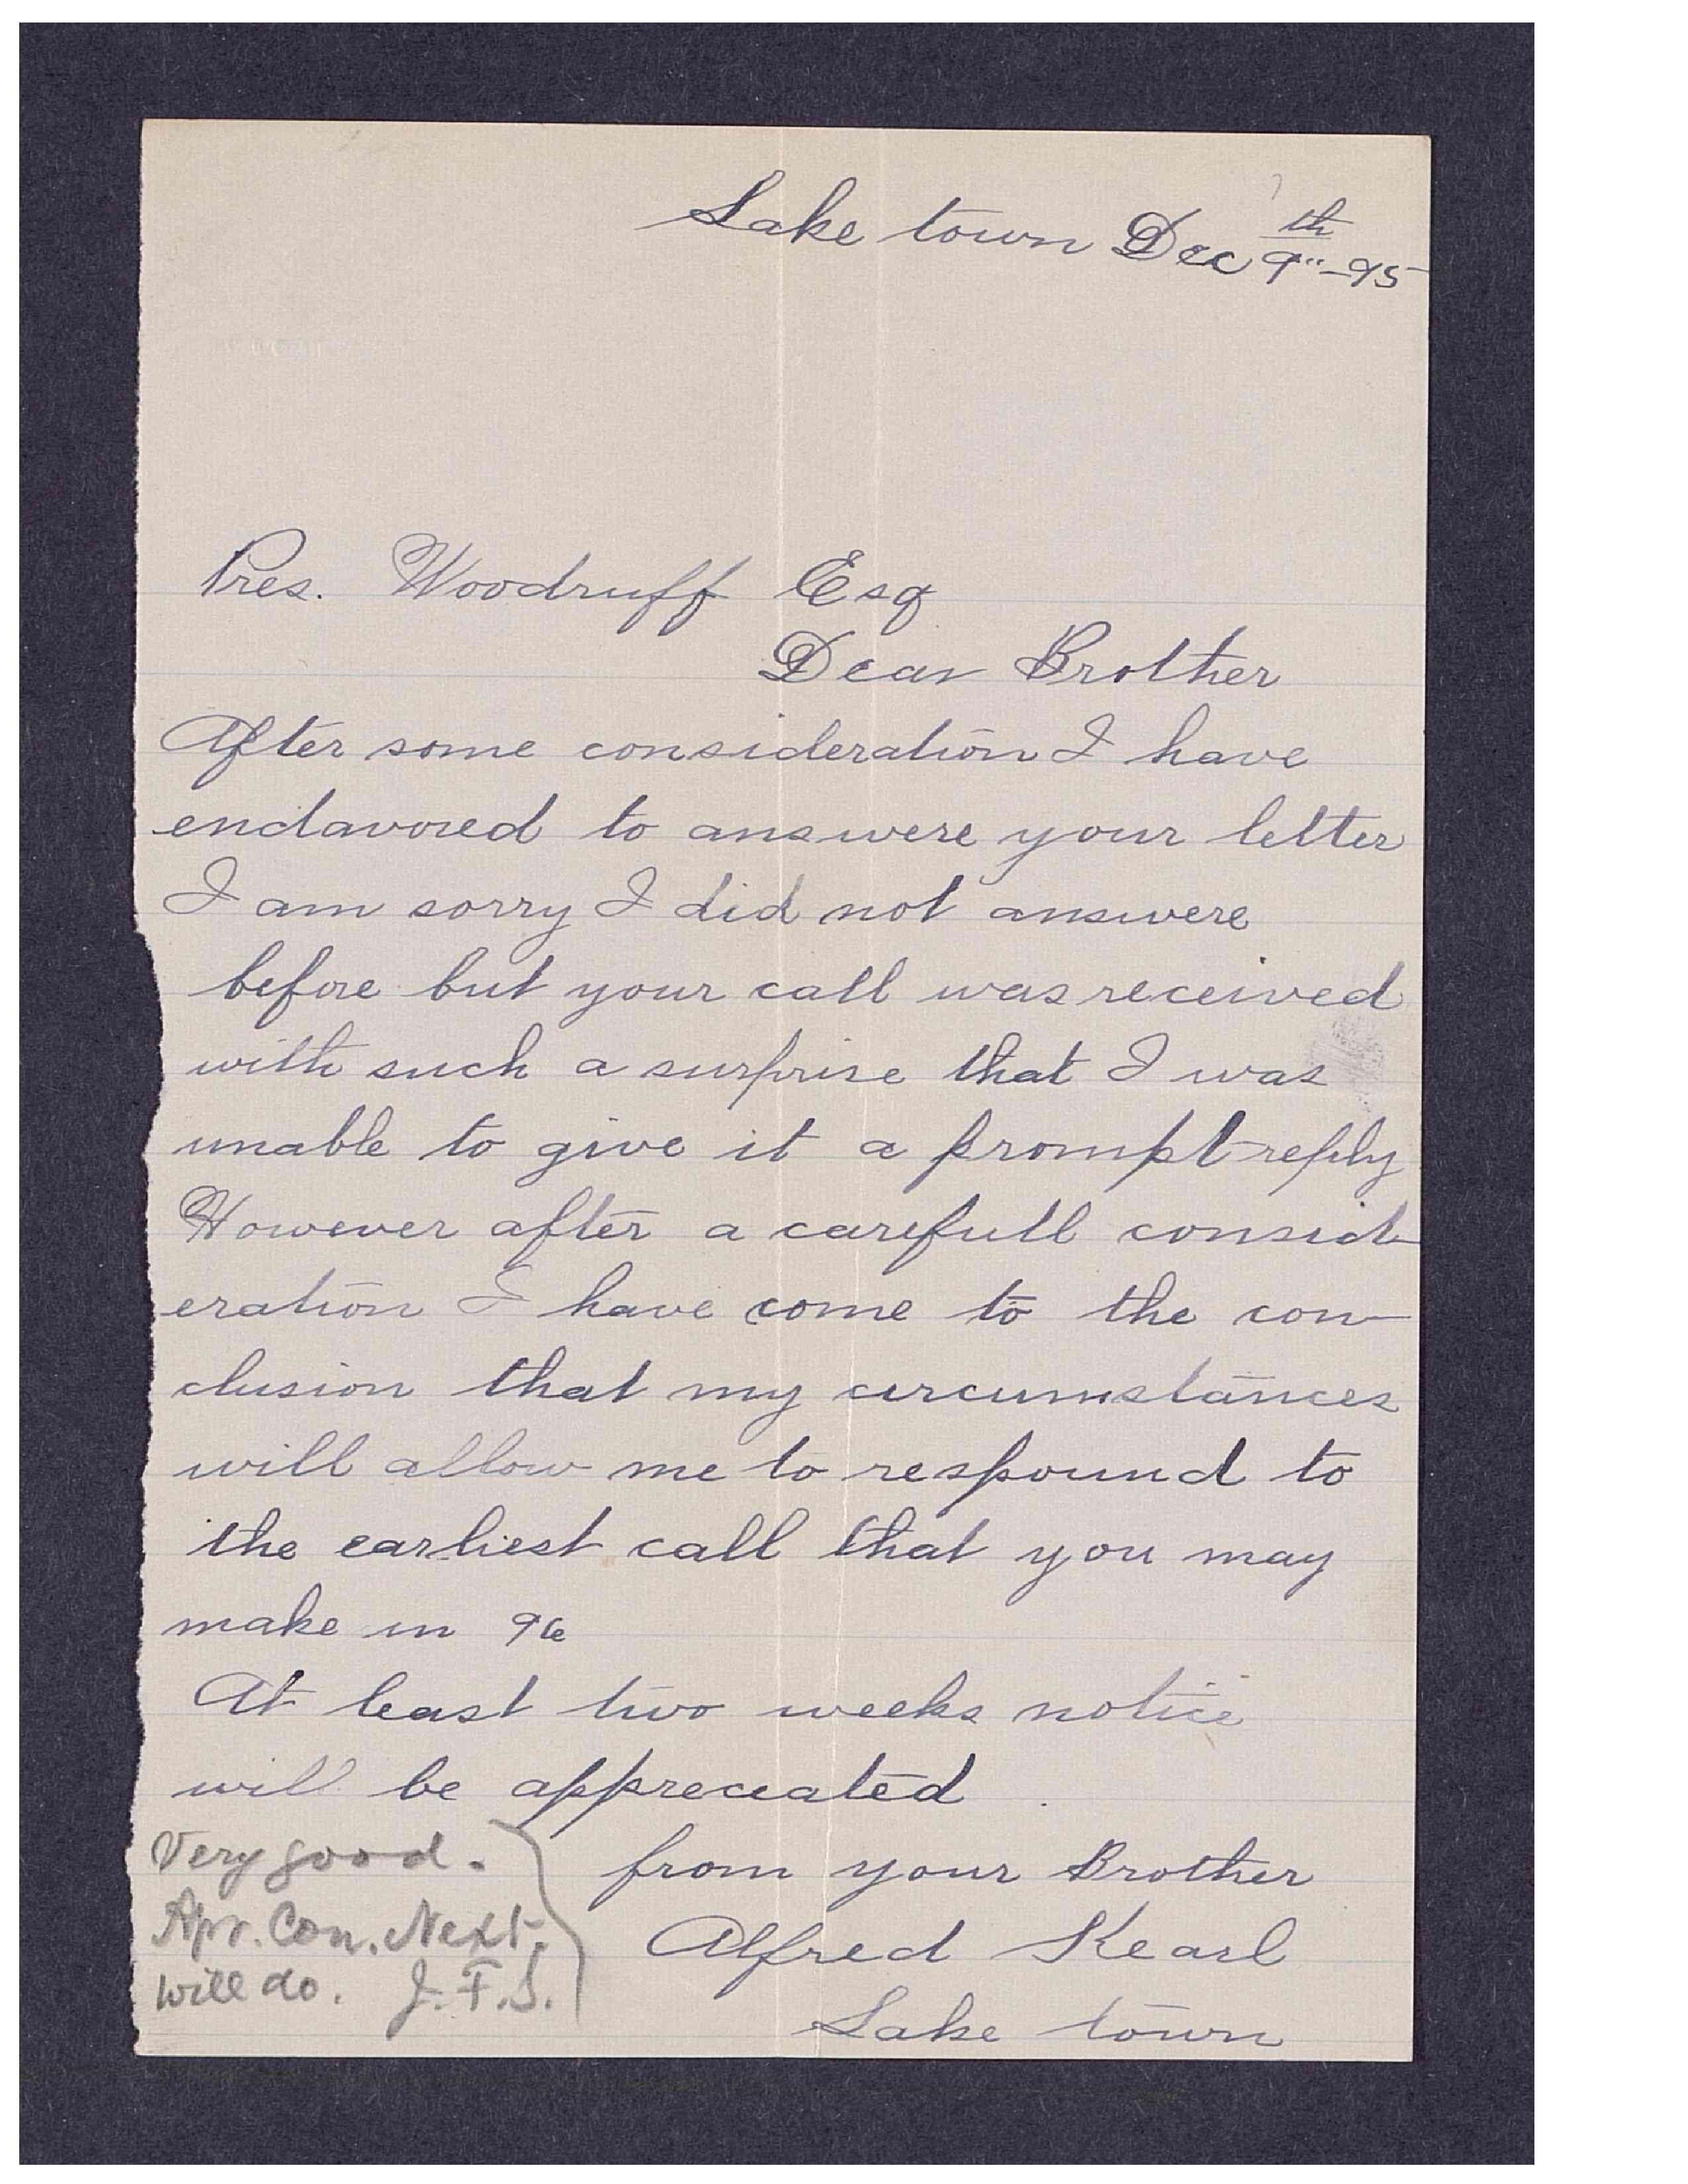 Lake town Dec 9th -95
Pres. Woodruff Esq
Dear Brother
After some consideration I have
endavored to answere your letter
I am sorry I did not answere
before but your call was received
with such a surprise that I was
unable to give it a prompt reply
However after a carefull consid-
eration I have come to the con-
clusion that my circumstances
will allow me to respound to
the earliest call that you may
make in 96
At least two weeks notice
will be appreceated.
from your Brother
Alfred Kearl
Lake town
Very good.
Apr. Con. Next.
will do. J. F. S.